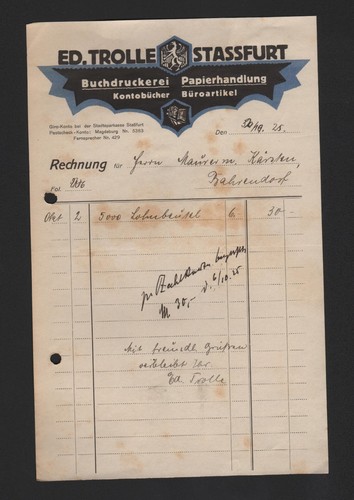 ED. TROLLE STASSFURT
Buchdruckerei Papierhandlung
Kontobücher Büroartikel
Giro-Konto bei der Stadtsparkasse Staßfurt
Postscheck-Konto: Magdeburg Nr. 5360
Fernsprecher Nr. 429
Den 25.
Rechnung für Herrn Maurerm. Kärsten,
Fol. Bahrendorf
Okt 2 5000 Lohnbeutel 6. 30.-
M 30,- 6/10.25
Mit freundl. Grüßen
verbleibt Ihr
Ed. Trolle